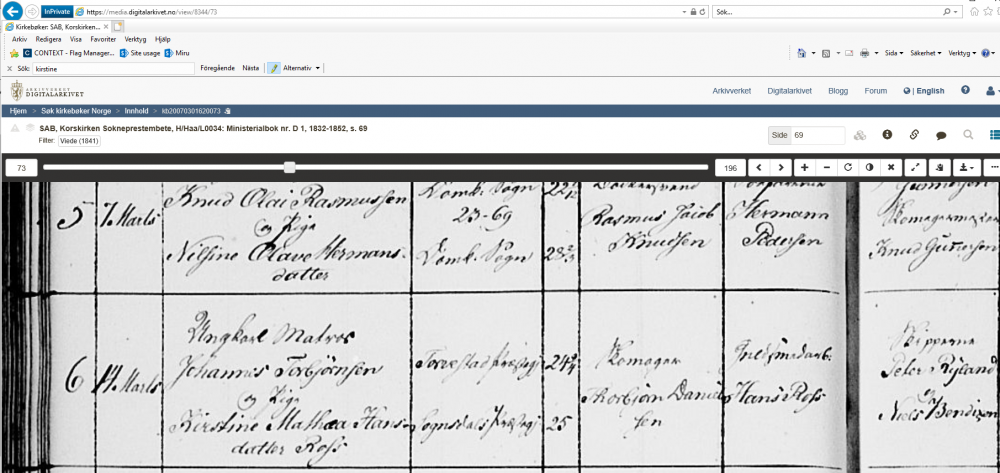 InPrivate https://media.digitalarkivet.no/view/8344/73 Søk...
Kirkebøker: SAB, Korskirken...
Arkiv Redigera Visa Favoriter Verktyg Hjälp
CONTEXT - Flag Manager... Site usage Miru Sida Säkerhet Verktyg
× Sök: kirstine Föregående Nästa Alternativ
ARKIVVERKET
DIGITALARKIVET
Arkivverket Digitalarkivet Blogg Forum | English
Hjem > Søk kirkebøker Norge > Innhold > kb20070301620073
SAB, Korskirken Sokneprestembete, H/Haa/L0034: Ministerialbok nr. D 1, 1832-1852, s. 69
Filter: Viede (1841)
Side 69
73 196
5 7. Marts Knud Olai Rasmussen Domk. Sogn
og Pige 23-69 Rasmus Jacob Hermann
Nilsine Olave Hermans- Domk. Sogn Knudsen Pedersen Knud
datter
Ungkarl Matros
6 14. Marts Johannes Torbjörnsen
og Pige Hans Ross
Kirstine Mathea Hans- 25 Niels Bendixen
datter Ross sen